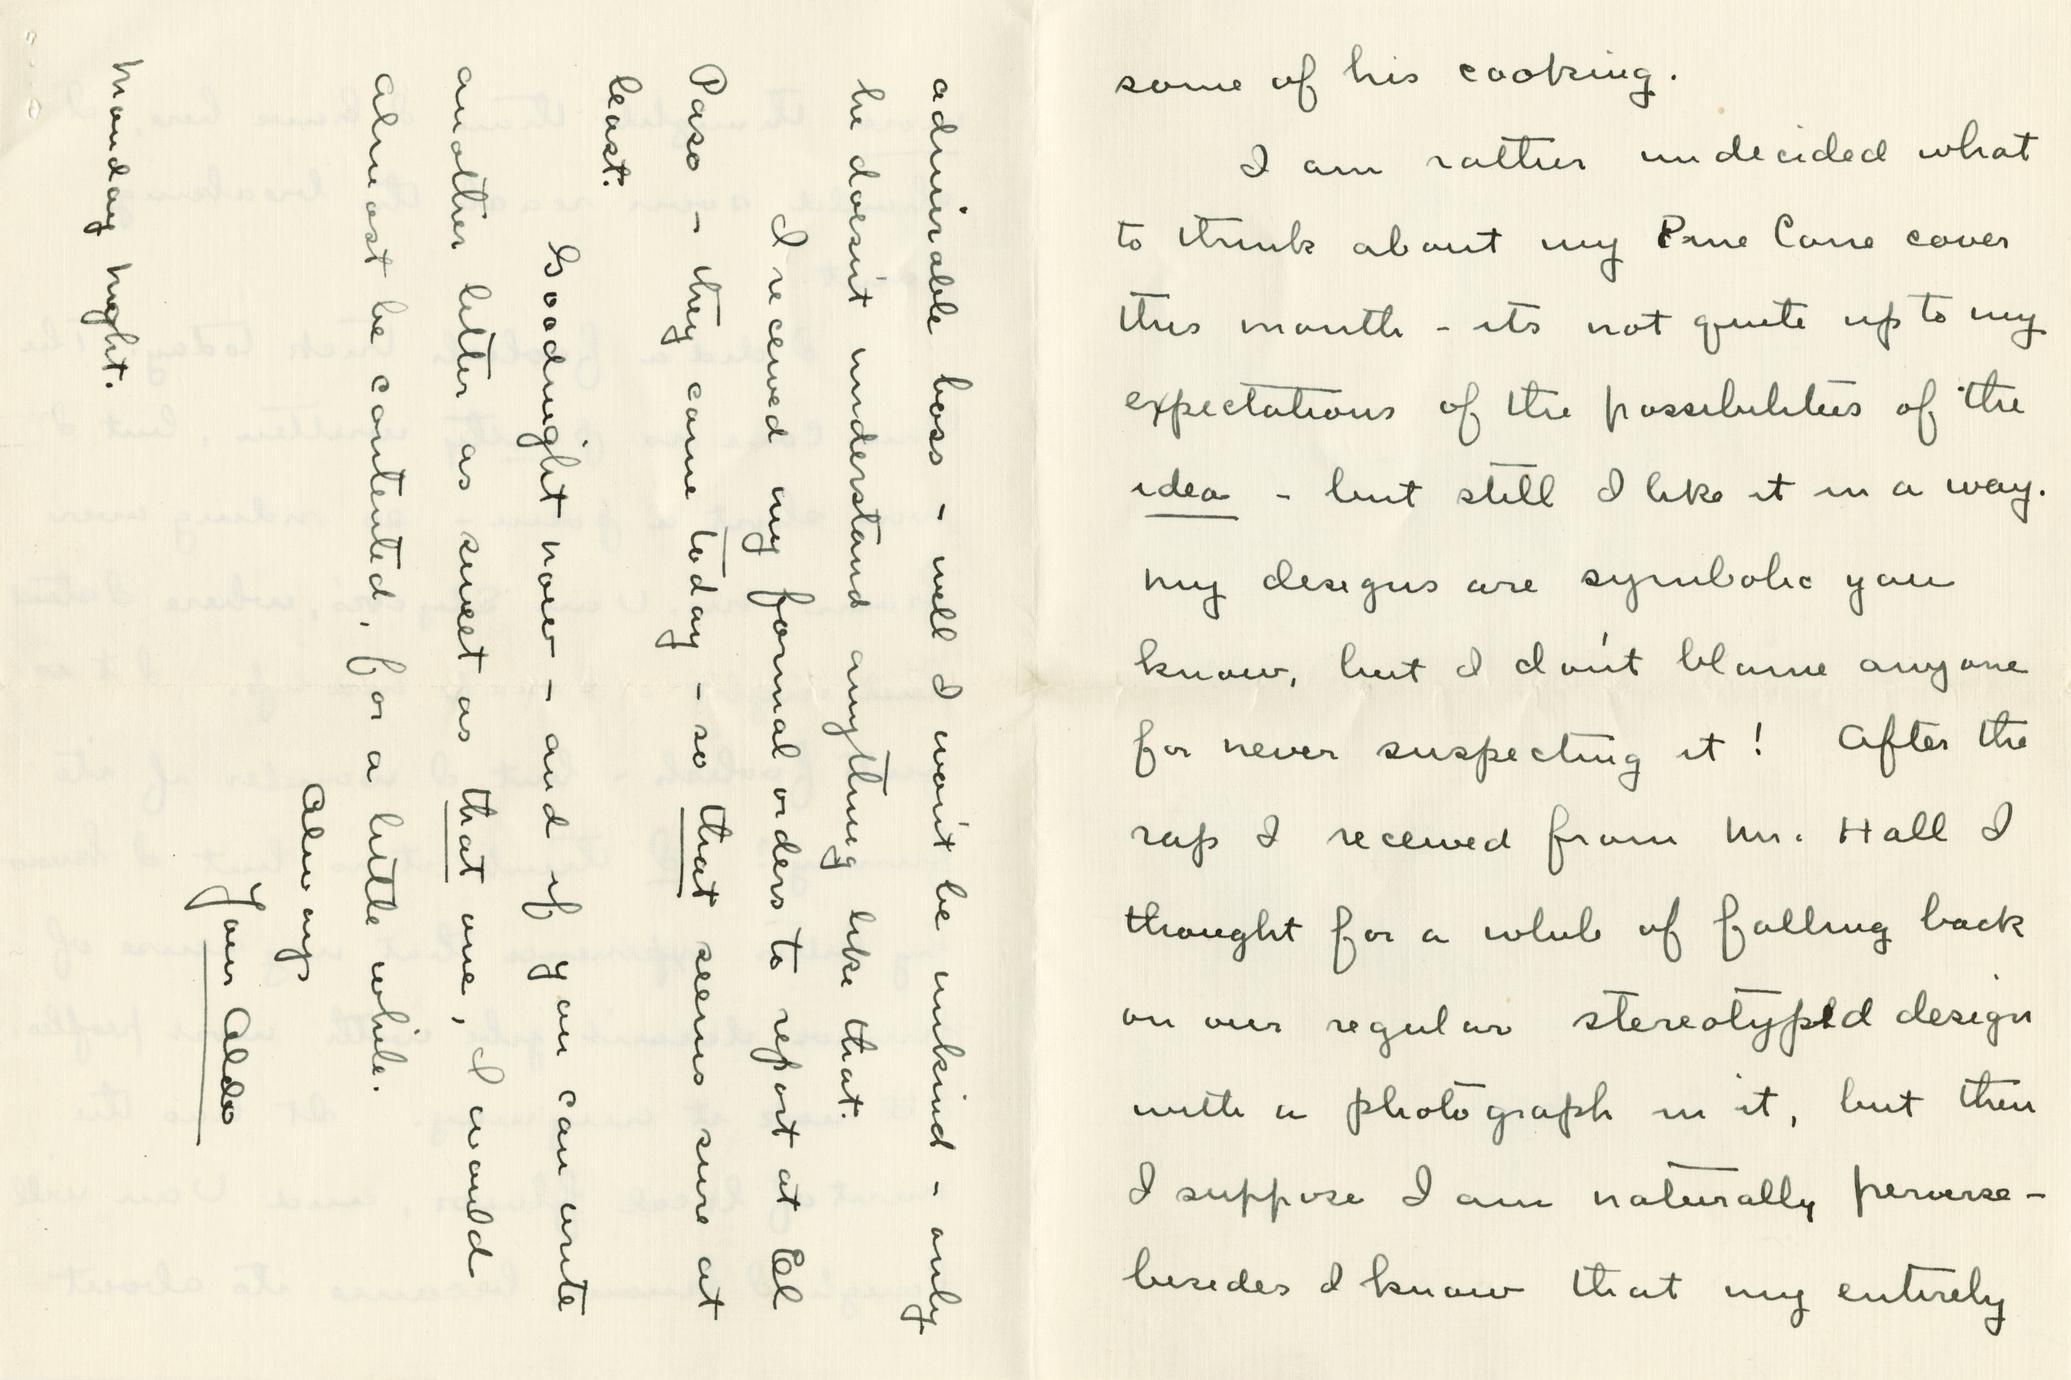 some of his cooking.
I am rather undecided what
to think about my Pine Cone cover
this month - its not quite up to my
expectations of the possibilities of the
idea - but still I like it in a way.
My designs are symbolic you
know, but I don't blame anyone
for never suspecting it! After the
rap I received from Mr. Hall I
thought for a while of falling back
on our regular stereotyped design
with a photograph in it, but then
I suppose I am naturally perverse -
besides I know that my entirely
admirable boss - well I won't be unkind - only
he doesn't understand anything like that.
I received my formal orders to report at El
Paso - they came today - so that seems sure at
least.
Goodnight now - and if you can write
another letter as sweet as that one, I would
almost be contented, for a little while.
Always
Your Aldo
Monday night.